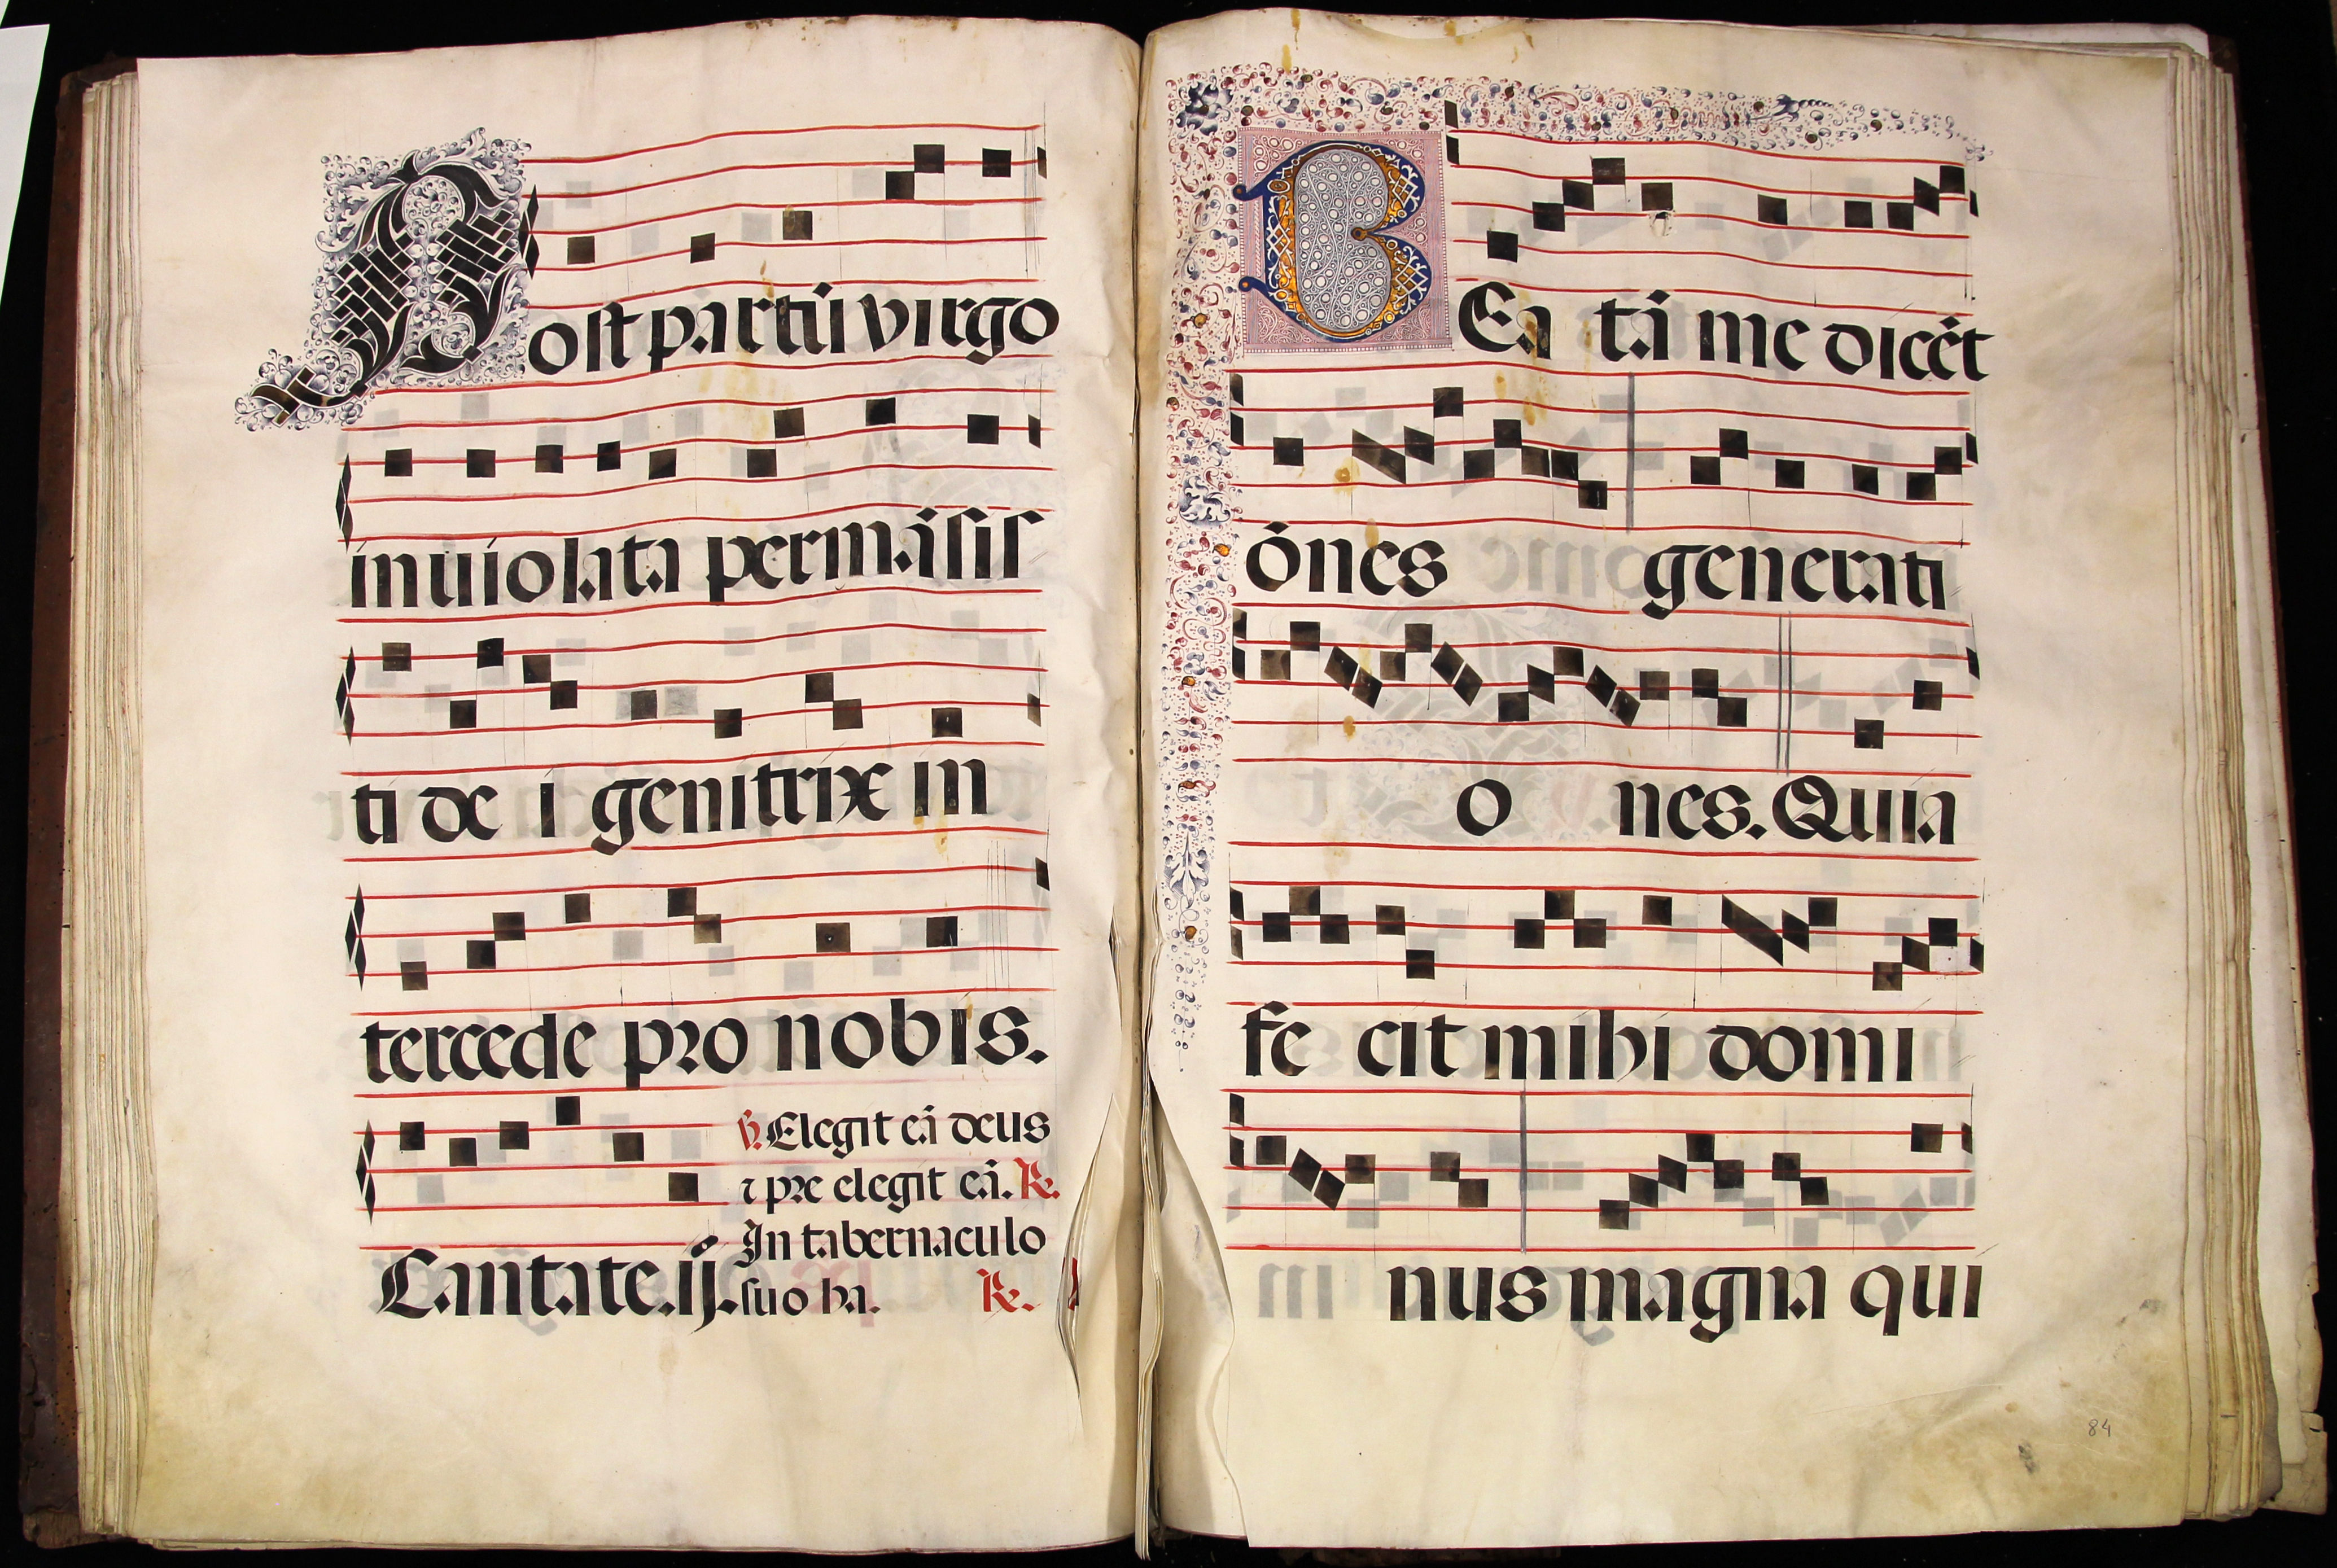 Post partū virgo
inuiolata permāsis
ti de i genitrix in
tercede pro nobis.
Cantate.ij.
℣. Elegit eā deus
⁊ pre elegit eā. ℟.
In tabernaculo
suo ha. ℟.
BEa tā me dicēt
ōnes generati
o nes. Quia
fe cit mihi domi
nus magna qui
84